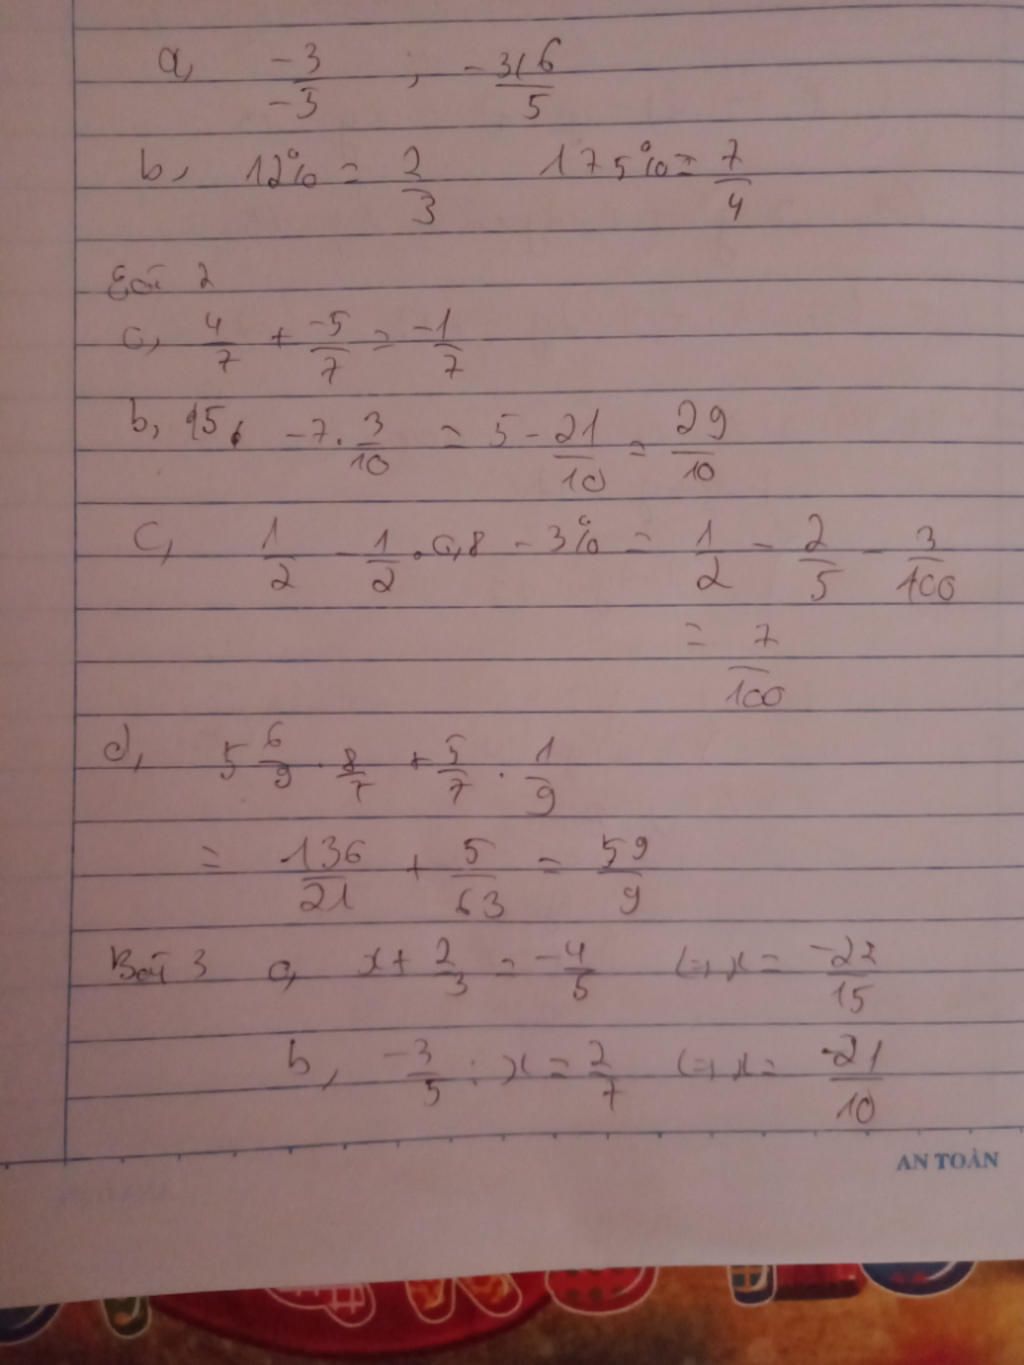 a, -3/-3 ; -3,6/5
b, 12% = 2/3 175% = 7/4
Bài 2
a, 4/7 + -5/7 = -1/7
b, -7 . 3/10 = 5 - 21/10 = 29/10
c, 1/2 - 1/2 . 0,8 - 3% = 1/2 - 2/5 - 3/100
= 7/100
d, 5 6/9 . 8/7 + 5/7 . 1/9
= 136/21 + 5/63 = 59/9
Bài 3 a, x + 2/3 = -4/5 <=> x = -22/15
b, -3/5 : x = 2/7 <=> x = -21/10
AN TOÀN